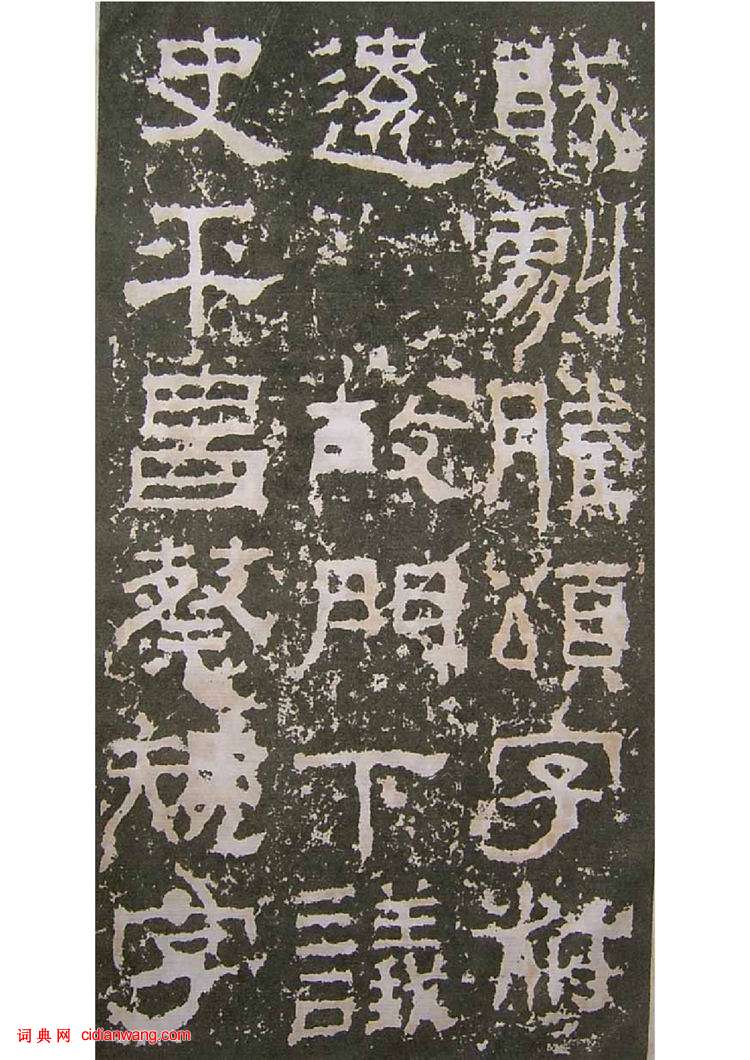 賊劇騰頌字叔
遠　故門下議
史平昌蔡規字
词典网 cidianwang.com